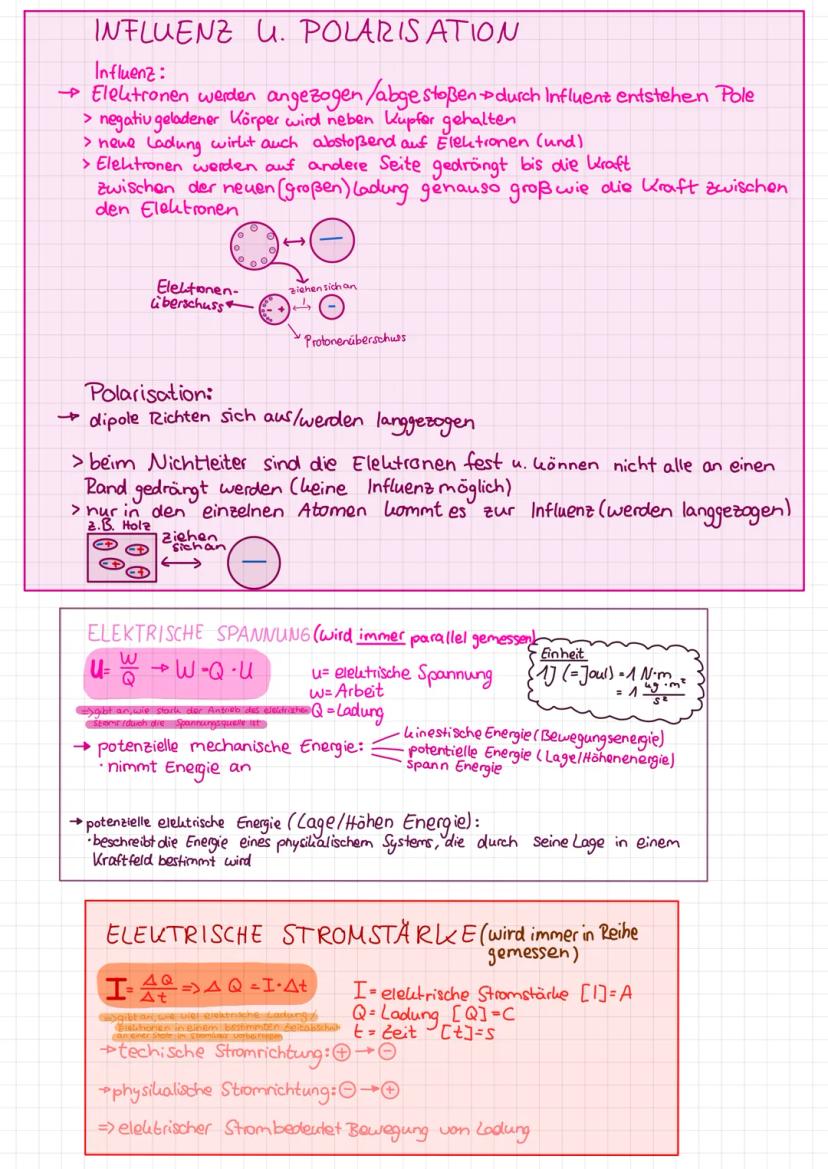 INFLUENZ U. POLARISATION
Influenz:
→ Elektronen werden angezogen/abgestoßen → durch Influenz entstehen Pole
> negativ geladener Körper wird neben Kupfer gehalten
> neue Ladung wirkt auch abstoßend auf Elektronen (und)
> Elektronen werden auf andere Seite gedrängt bis die Kraft
zwischen der neuen (großen) Ladung genauso groß wie die Kraft zwischen
den Elektronen
Elektonen-
überschuss
ziehen sich an
Protonenüberschuss
Polarisation:
→ dipole Richten sich aus/werden langgezogen
> beim Nichtleiter sind die Elektronen fest u. können nicht alle an einen
Rand gedrängt werden (keine Influenz möglich)
> nur in den einzelnen Atomen kommt es zur Influenz (werden langgezogen)
z.B. Holz
ziehen
sich an
ELEKTRISCHE SPANNUNG (wird immer parallel gemessen)
U = W/Q → W = Q · U
u = elektrische Spannung
w = Arbeit
Q = Ladung
Einheit
1J (= Joul) = 1 N·m
= 1 kg·m²/s²
=> gibt an, wie stark der Antrieb des elektrischen
Stroms durch die Spannungsquelle ist
→ potenzielle mechanische Energie:
· nimmt Energie an
kinestische Energie (Bewegungsenergie)
potentielle Energie (Lage/Höhenenergie)
Spann Energie
→ potenzielle elektrische Energie (Lage/Höhen Energie):
· beschreibt die Energie eines physikalischem Systems, die durch seine Lage in einem
Kraftfeld bestimmt wird
ELEKTRISCHE STROMSTÄRKE (wird immer in Reihe
gemessen)
I = ΔQ/Δt => ΔQ = I·Δt
I = elektrische Stromstärke [I] = A
Q = Ladung [Q] = C
t = Zeit [t] = s
=> gibt an, wie viel elektrische Ladung/
Elektronen in einem bestimmten Zeitabschnitt
an einer Stelle im
→ techische Stromrichtung: + → −
→ physikalische Stromrichtung: − → +
=> elektrischer Strom bedeutet Bewegung von Ladung